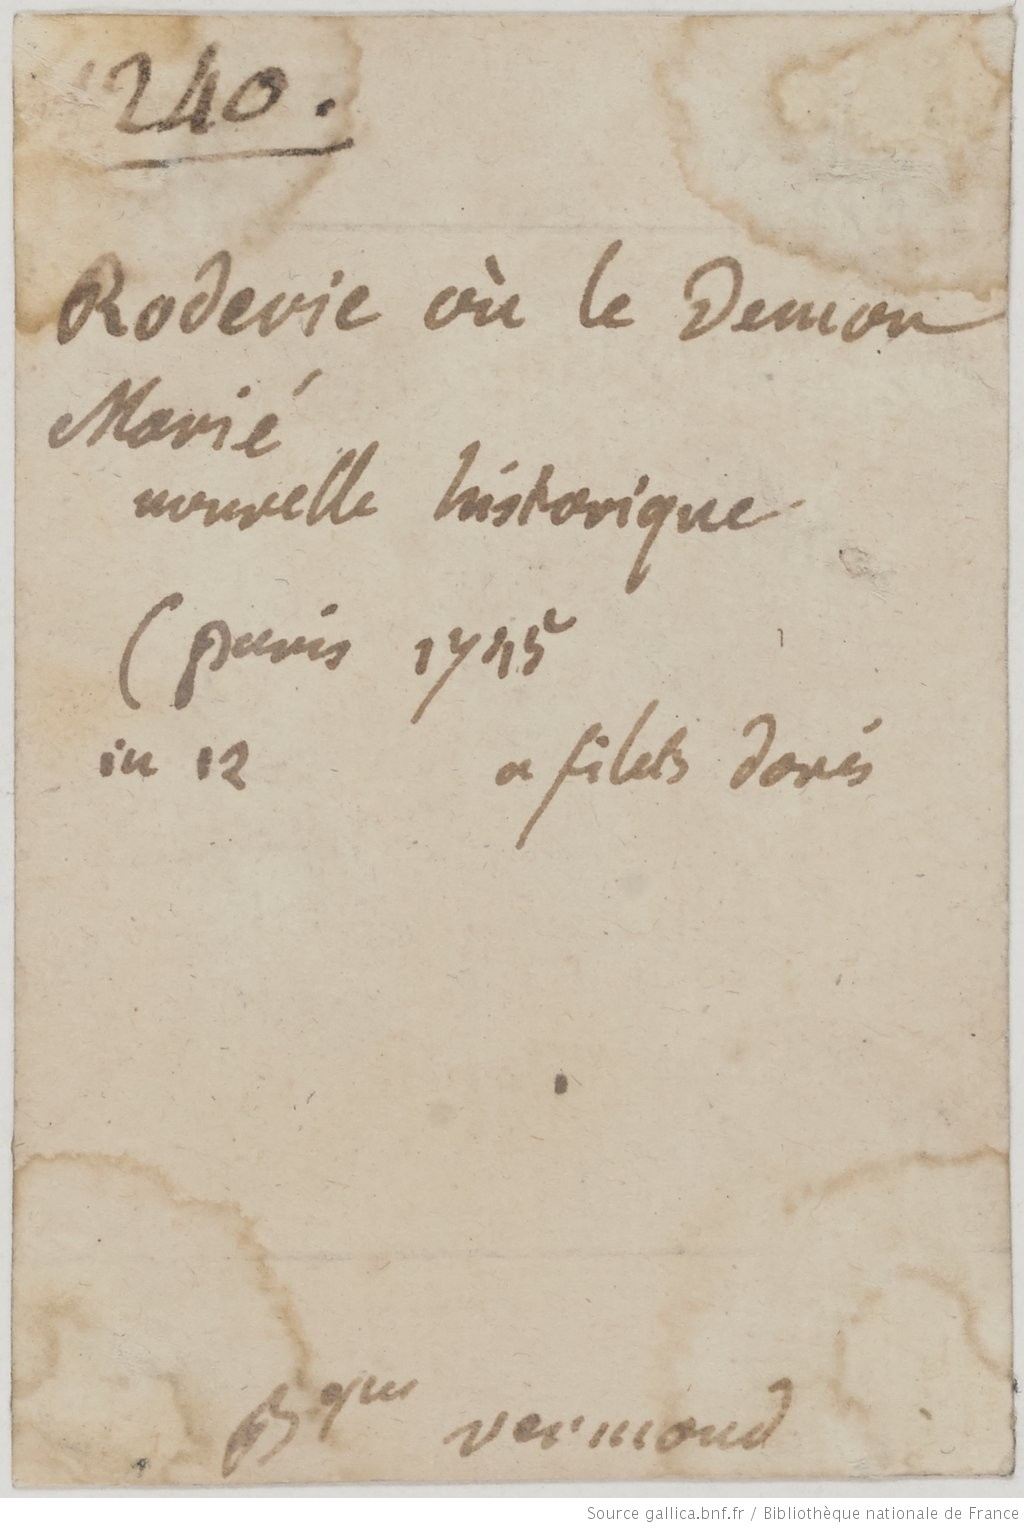 240.
Roderic où le Demon
Marié
nouvelle historique
(paris 1745
in 12 a filets dorés
Bque vermond
Source gallica.bnf.fr / Bibliothèque nationale de France